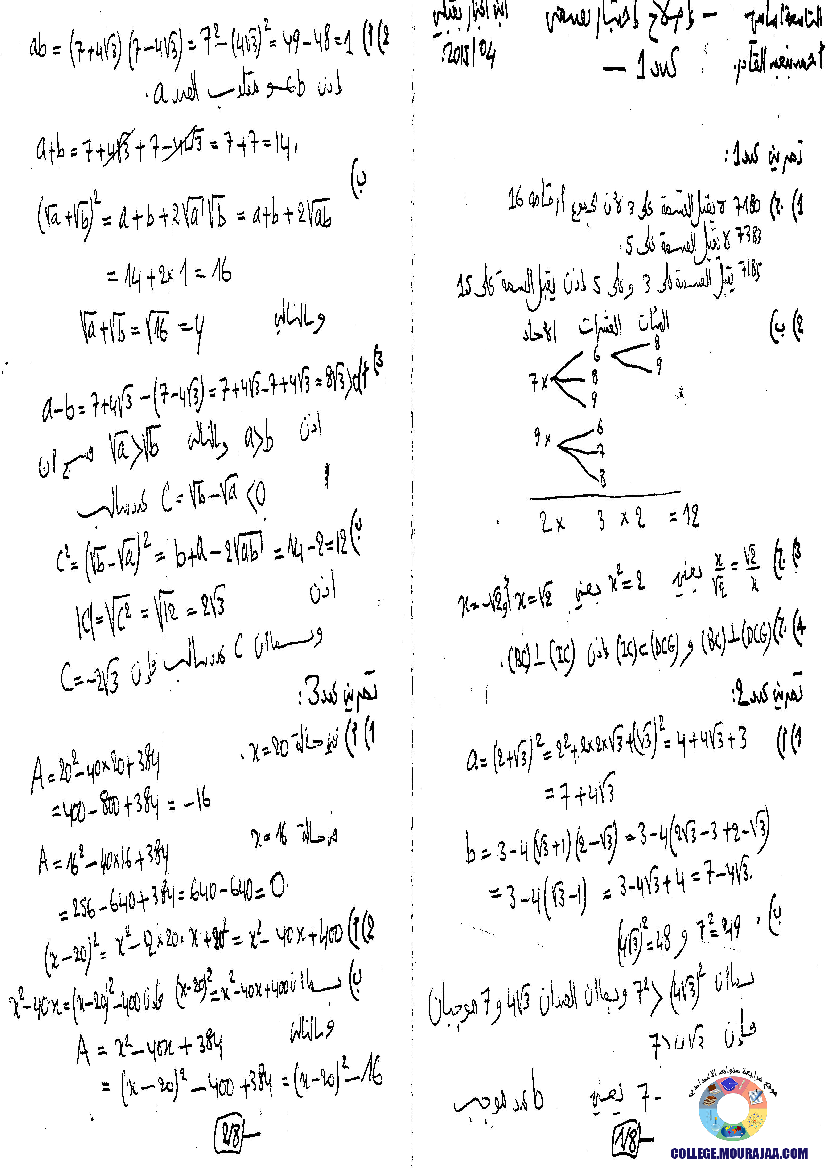 التاسعة أساسي – إصلاح اختبار تجريبي
عدد 1 –
2018/04
تمرين عدد 1:
1) ج) 7180 لا يقبل القسمة على 3 لأن مجموع أرقامه 16
7383 لا يقبل القسمة على 5
7185 يقبل القسمة على 3 و على 5 إذن يقبل القسمة على 15
2) ب) المئات العشرات الآحاد
7 ×
6
8
9
8
9
9 ×
6
7
8
2 × 3 × 2 = 12
3) ج) x/√2 = √2/x يعني x² = 2 يعني x = √2 أو x = -√2
4) ج) (BC) ⊥ (DCG) و (IC) ⊂ (DCG) إذن (BC) ⊥ (IC).
تمرين عدد 2:
1) أ) a = (2+√3)² = 2² + 2×2×√3 + (√3)² = 4 + 4√3 + 3
= 7 + 4√3
b = 3 - 4(√3+1)(2-√3) = 3 - 4(2√3 - 3 + 2 - √3)
= 3 - 4(√3 - 1) = 3 - 4√3 + 4 = 7 - 4√3.
ب) 7² = 49 و
(4√3)² = 48
بما أن 7² > (4√3)² وبما أن العددان 4√3 و 7 موجبان
فإن 7 > 4√3
7 - يعني b عدد موجب
1/8
2) أ) ab = (7+4√3)(7-4√3) = 7² - (4√3)² = 49 - 48 = 1
إذن b هو مقلوب العدد a.
a+b = 7 + 4√3 + 7 - 4√3 = 7 + 7 = 14.
ب)
(√a + √b)² = a + b + 2√a √b = a + b + 2√ab
= 14 + 2×1 = 16
وبالتالي √a + √b = √16 = 4
3) أ) a - b = 7 + 4√3 - (7 - 4√3) = 7 + 4√3 - 7 + 4√3 = 8√3 > 0
إذن a > b وبالتالي √a > √b
C = √b - √a < 0 عدد سالب
ب) C² = (√b - √a)² = b + a - 2√ab = 14 - 2 = 12
إذن |C| = √C² = √12 = 2√3
وبما أن C عدد سالب فإن C = -2√3
تمرين عدد 3:
1) أ) في حالة x = 20.
A = 20² - 40×20 + 384
= 400 - 800 + 384 = -16
في حالة x = 16
A = 16² - 40×16 + 384
= 256 - 640 + 384 = 640 - 640 = 0
2) أ) (x-20)² = x² - 2×20·x + 20² = x² - 40x + 400
ب) بما أن (x-20)² = x² - 40x + 400 فإن x² - 40x = (x-20)² - 400
وبالتالي A = x² - 40x + 384
= (x-20)² - 400 + 384 = (x-20)² - 16
2/8
COLLEGE.MOURAJAA.COM